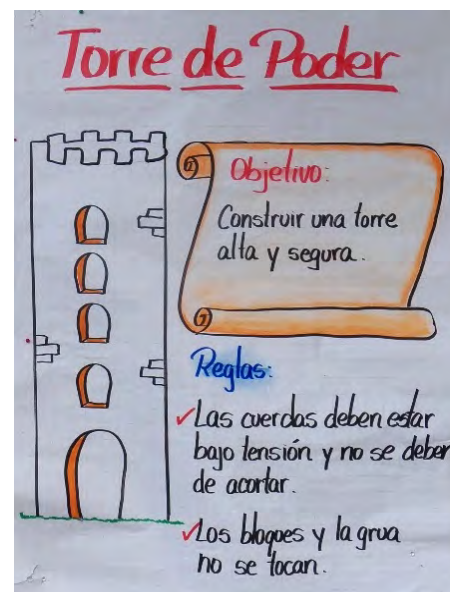 Torre de Poder
Objetivo:
Construir una torre
alta y segura.
Reglas:
✓Las cuerdas deben estar
bajo tensión y no se deben
de acortar.
✓Los bloques y la grua
no se tocan.